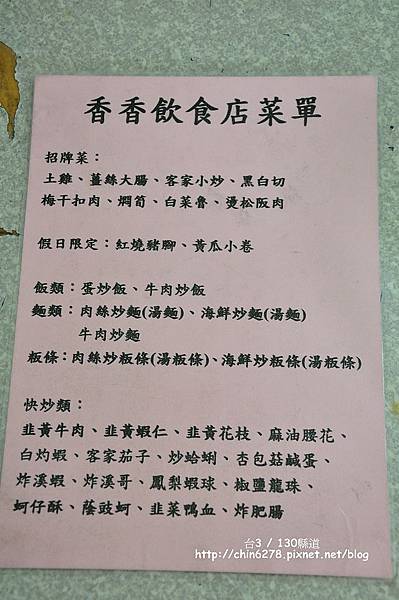 香香飲食店菜單
招牌菜：
土雞、薑絲大腸、客家小炒、黑白切
梅干扣肉、燜筍、白菜魯、燙松阪肉
假日限定：紅燒豬腳、黃瓜小卷
飯類：蛋炒飯、牛肉炒飯
麵類：肉絲炒麵(湯麵)、海鮮炒麵(湯麵)
牛肉炒麵
粄條：肉絲炒粄條(湯粄條)、海鮮炒粄條(湯粄條)
快炒類：
韭黃牛肉、韭黃蝦仁、韭黃花枝、麻油腰花、
白灼蝦、客家茄子、炒蛤蜊、杏包菇鹹蛋、
炸溪蝦、炸溪哥、鳳梨蝦球、椒鹽龍珠、
蚵仔酥、蔭豉蚵、韭菜鴨血、炸肥腸
台3 / 130縣道
http://chin6278.pixnet.net/blog